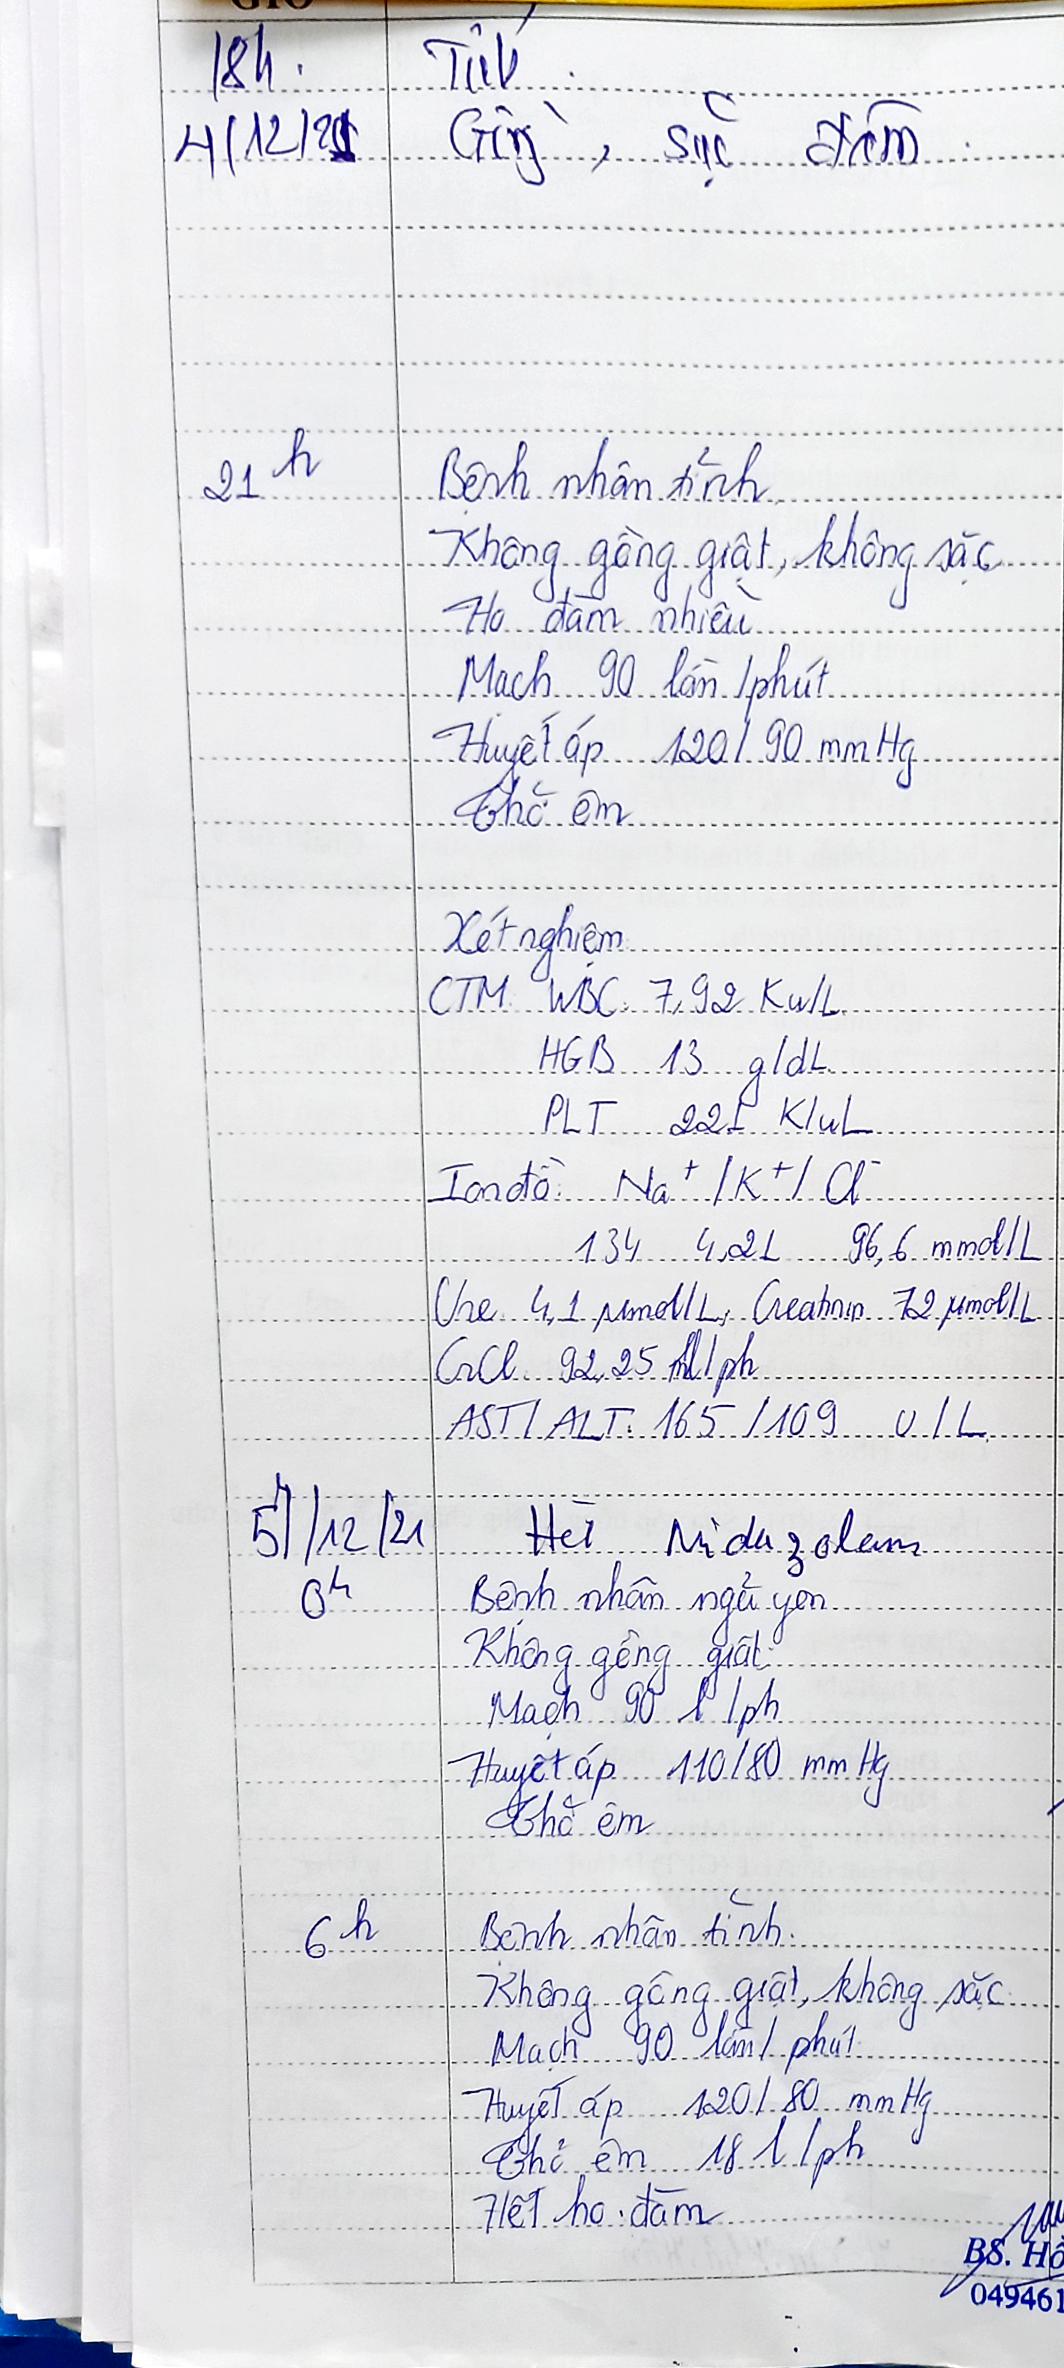 GIỜ
18h. Tỉnh
4/12/21 Gồng, sặc đàm.
21h Bệnh nhân tỉnh.
Không gồng giật, không sặc
Ho đàm nhiều
Mạch 90 lần/phút
Huyết áp 120/90 mmHg
Thở êm
Xét nghiệm
CTM: WBC: 7,92 Ku/L
HGB 13 g/dL
PLT 221 K/uL
Ion đồ: Na+/K+/Cl-
134 4,21 96,6 mmol/L
Ure 4,1 µmol/L, Creatinin 72 µmol/L
CrCl 92,25 ml/ph
AST/ALT: 165/109 U/L
5/12/21 Hết Midazolam
0h Bệnh nhân ngủ yên
Không gồng giật
Mạch 90 l/ph
Huyết áp 110/80 mmHg
Thở êm
6h Bệnh nhân tỉnh.
Không gồng giật, không sặc
Mạch 90 lần/phút
Huyết áp 120/80 mmHg
Thở êm 18 l/ph
Hết ho đàm
BS. Hồ
049461